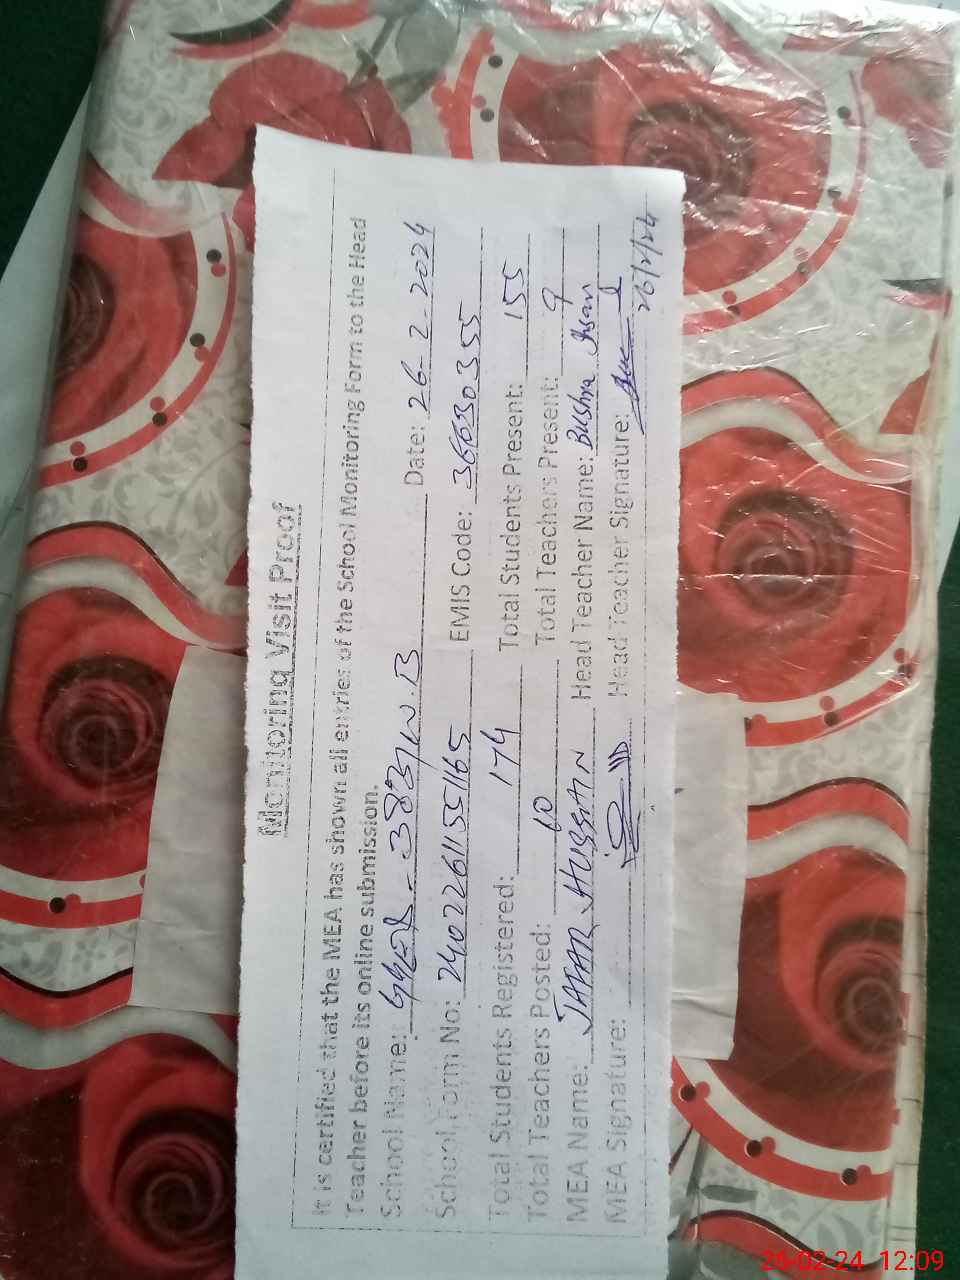 Monitoring Visit Proof
It is certified that the MEA has shown all entries of the School Monitoring Form to the Head
Teacher before its online submission.
School Name: 383/W.B Date: 26-2-2024
School Form No: 240226115516 5 EMIS Code: 36630355
Total Students Registered: 174 Total Students Present: 155
Total Teachers Posted: 10 Total Teachers Present: 9
MEA Name: JAFAR HUSSAIN Head Teacher Name: Bushra Ihsan
MEA Signature: Head Teacher Signature:
26/2/24
26-02-24 12:09